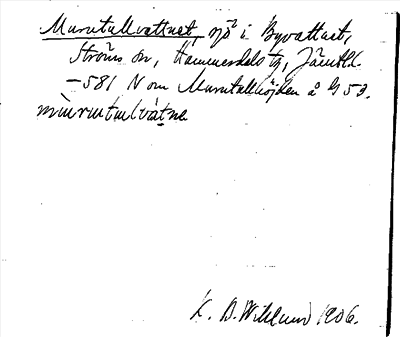 Murutullvattnet, sjö i Byvattnet,
Ströms sn, Hammerdals tg, Jämtl.
-581 N om Murutullhöjden å G 59.
mùrutulvátne
K. B. Wiklund 1906.